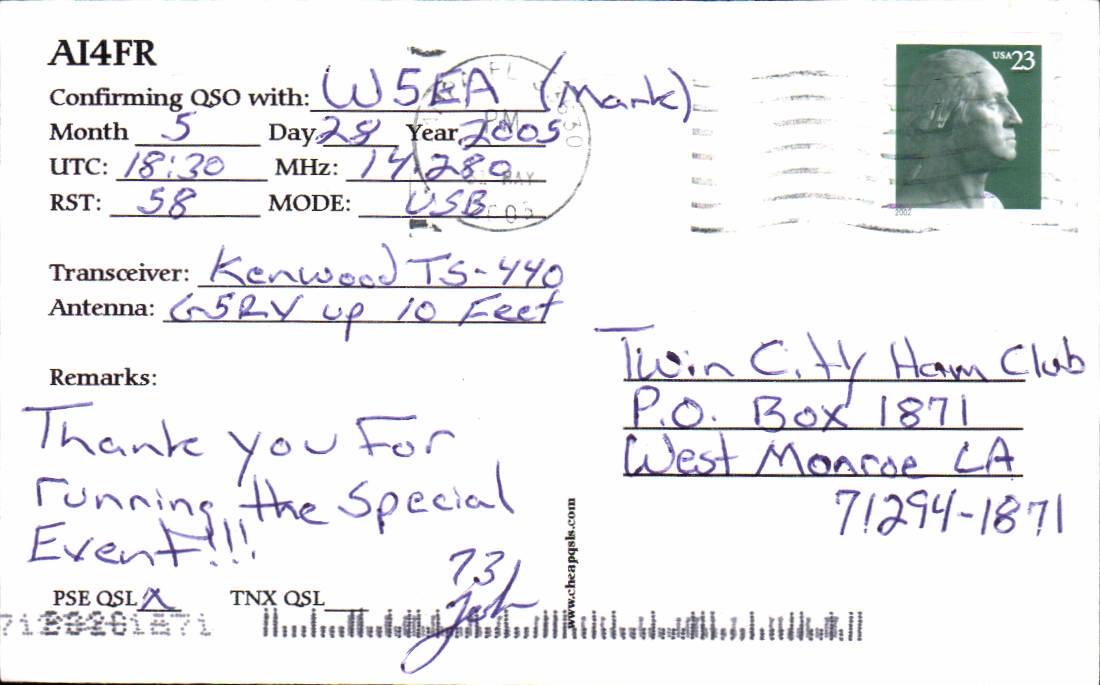 AI4FR
Confirming QSO with: W5EA (Mark)
Month 5 Day 28 Year 2005
UTC: 18:30 MHz: 14.280
RST: 58 MODE: USB
Transceiver: Kenwood TS-440
Antenna: G5RV up 10 Feet
Remarks:
Thank you For
running the special
Event!!!
73
John
PSE QSL X TNX QSL
www.cheapqsls.com
USA 23
2002
FL
PM
MAY
Twin City Ham Club
P.O. Box 1871
West Monroe LA
71294-1871